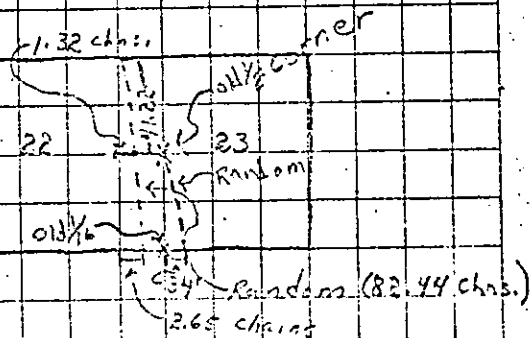 1.32 chns.
old 1/4 corner
41.22
22
23
Random
old 1/16
54
Random (82.44 Chns.)
2.65 chains